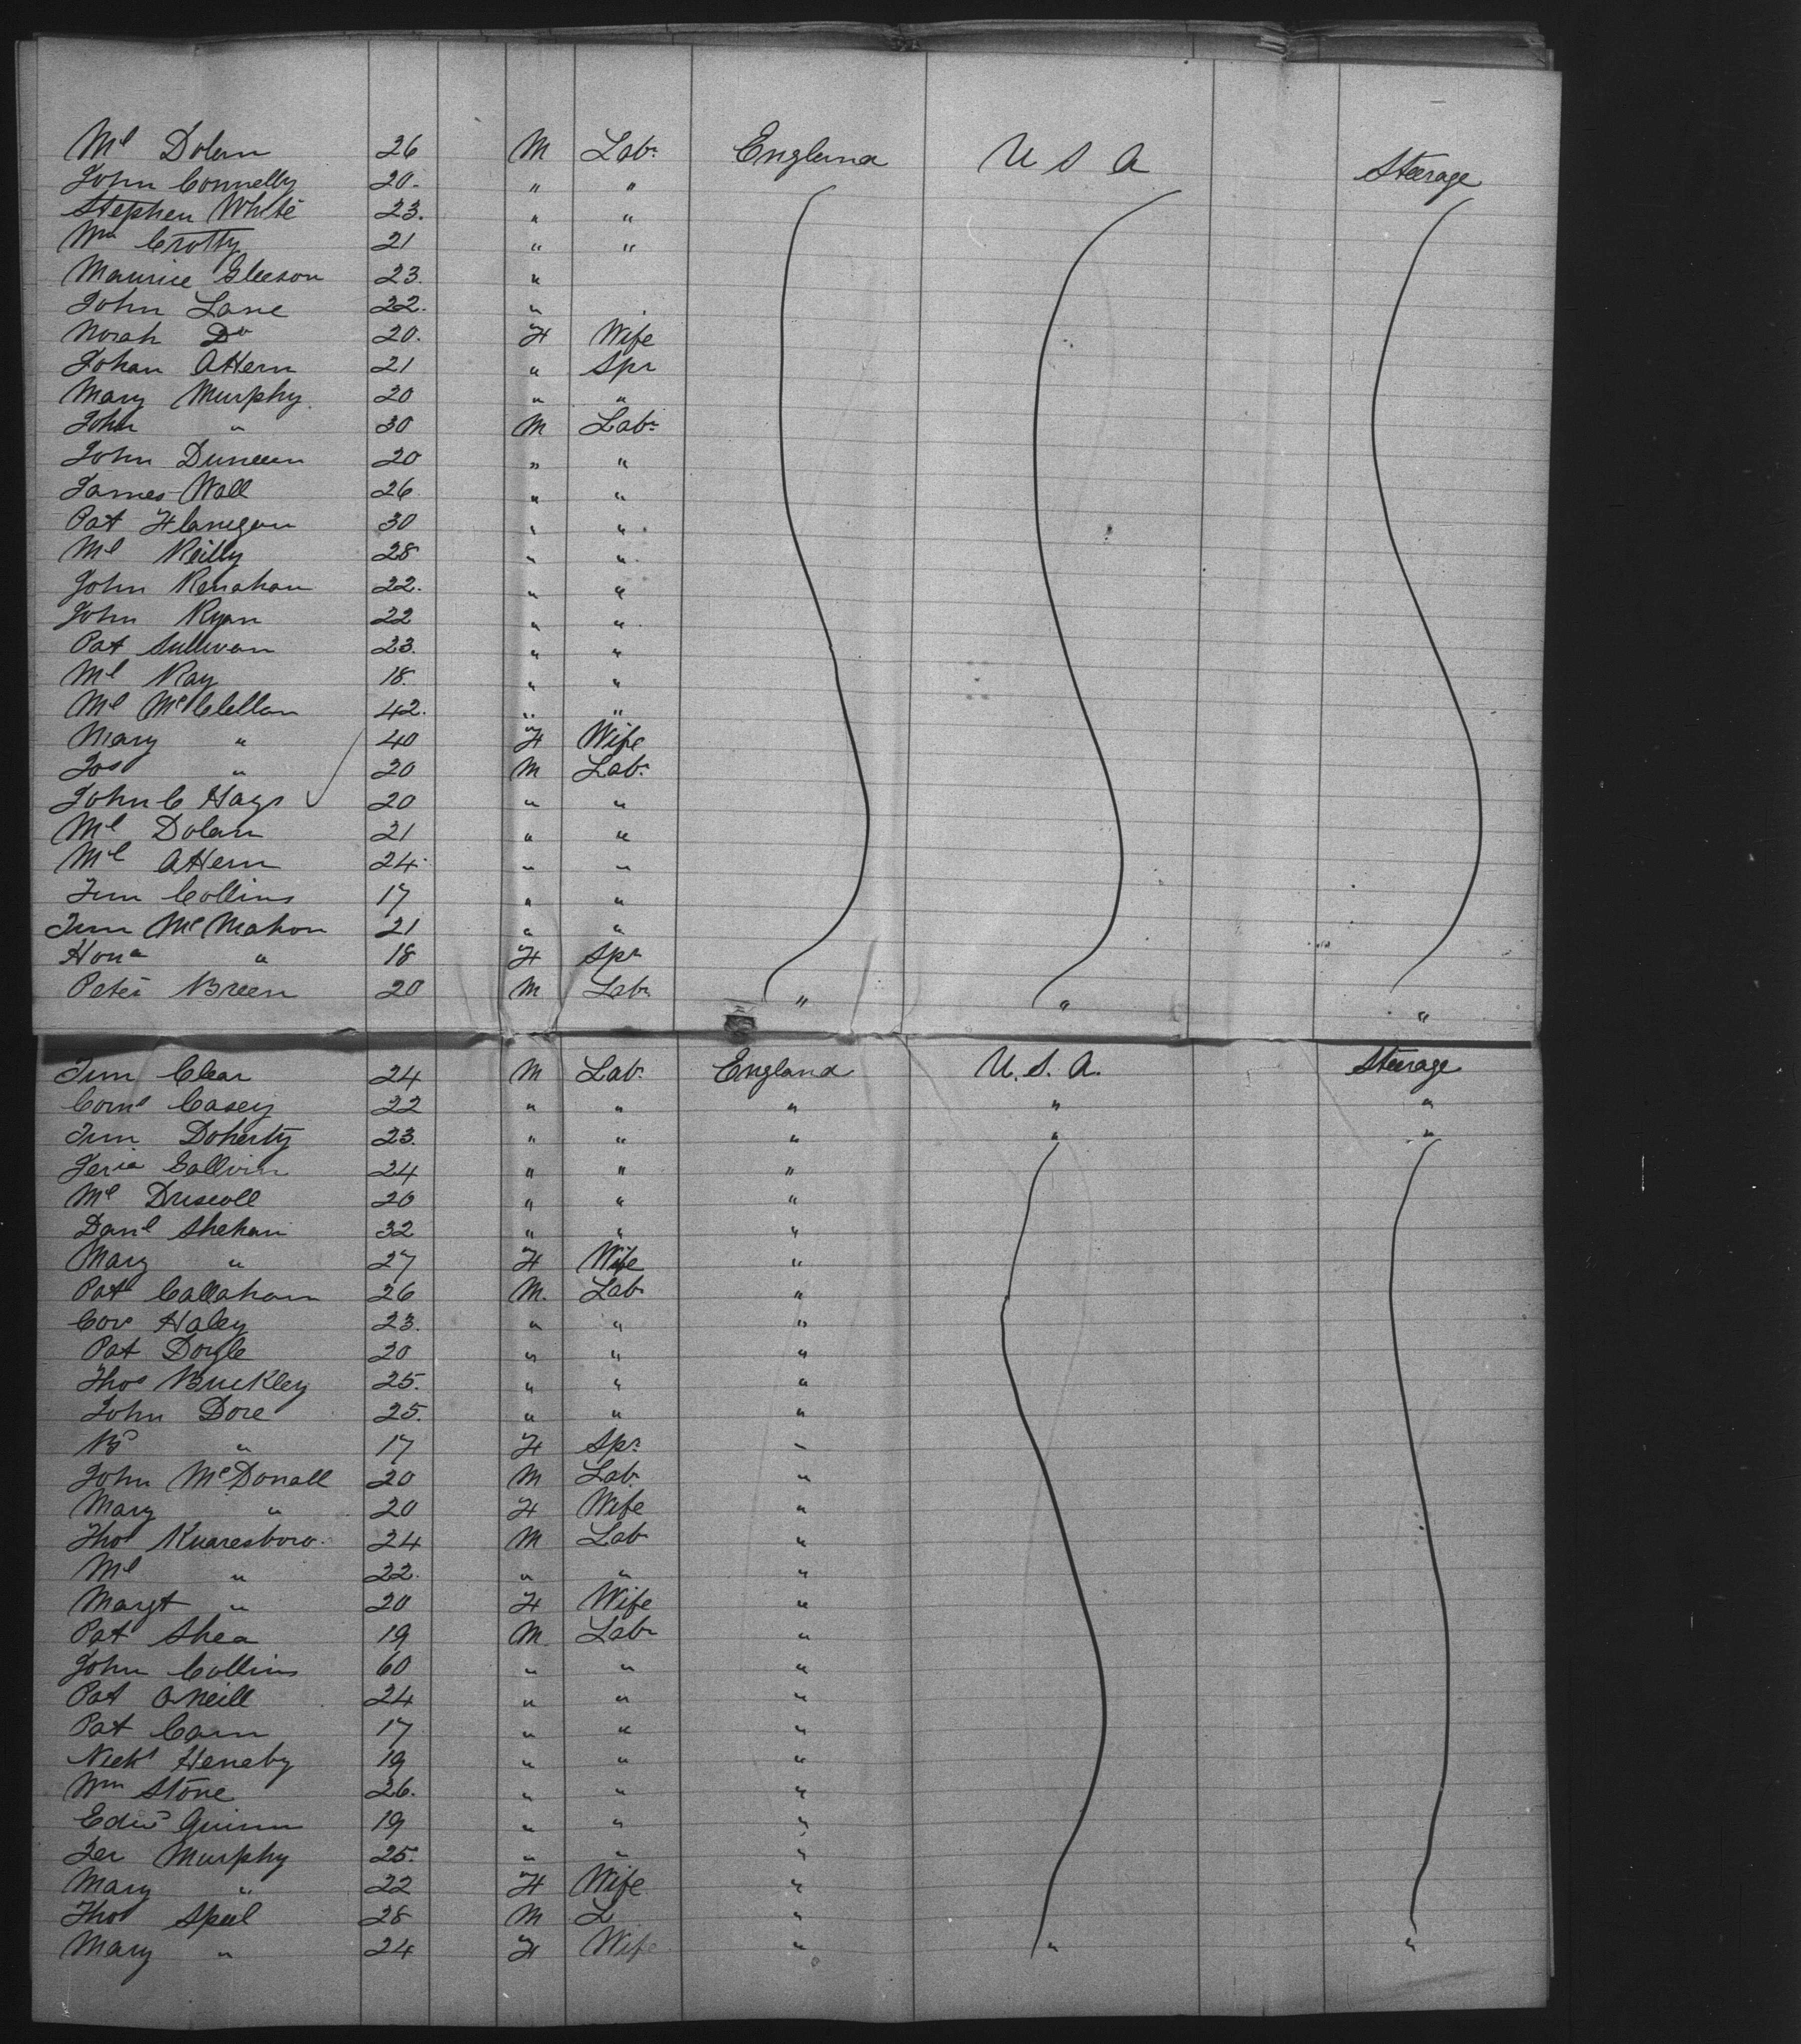 Ml Dolan 26 M Labr England U S A Steerage
John Connelly 20. " "
Stephen White 23. " "
Wm Crotty 21 " "
Maurice Gleeson 23. "
John Lane 22. "
Norah Do 20. F Wife
Johan AHern 21 " Spr
Mary Murphy 20 " "
John " 30 M Labr
John Duneen 20 " "
James Wall 26 " "
Pat Flanegan 30 " "
Ml Reilly 28 " "
John Renahan 22. " "
John Ryan 22 " "
Pat Sullivan 23. " "
Ml Ray 18. " "
Ml McClellan 42. " "
Mary " 40 F Wife
Jos " 20 M Labr
John C Hays 20 " "
Ml Dolan 21 " "
Ml AHern 24 " "
Jim Collins 17 " "
Jim McMahon 21 " "
Hona " 18 F Spr
Peter Breen 20 M Labr " " "
Jim Clear 24 M Labr England U. S. A. Steerage
Corns Casey 22 " " " " "
Jim Doherty 23. " " " " "
Jeria Callvin 24 " " "
Ml Driscoll 20 " " "
Danl Shehan 32 " " "
Mary " 27 F Wife "
Pat Callahan 26 M. Labr "
Cors Haley 23. " " "
Pat Doyle 20 " " "
Thos Buckley 25. " " "
John Dore 25. " " "
" 17 F Spr "
John McDonall 20 M Labr "
Mary " 20 F Wife "
Thos Knaresboro 24 M Labr "
Ml " 22. " " "
Margt " 20 F Wife "
Pat Shea 19 M. Labr "
John Collins 60 " " "
Pat ONeill 24 " " "
Pat Carn 17 " " "
Nichs Heneby 19 " " "
Wm Stone 26. " " "
Edwd Quinn 19 " " "
Jer Murphy 25. " " "
Mary " 22 F Wife "
Thos Speel 28 M L "
Mary " 24 F Wife " " "